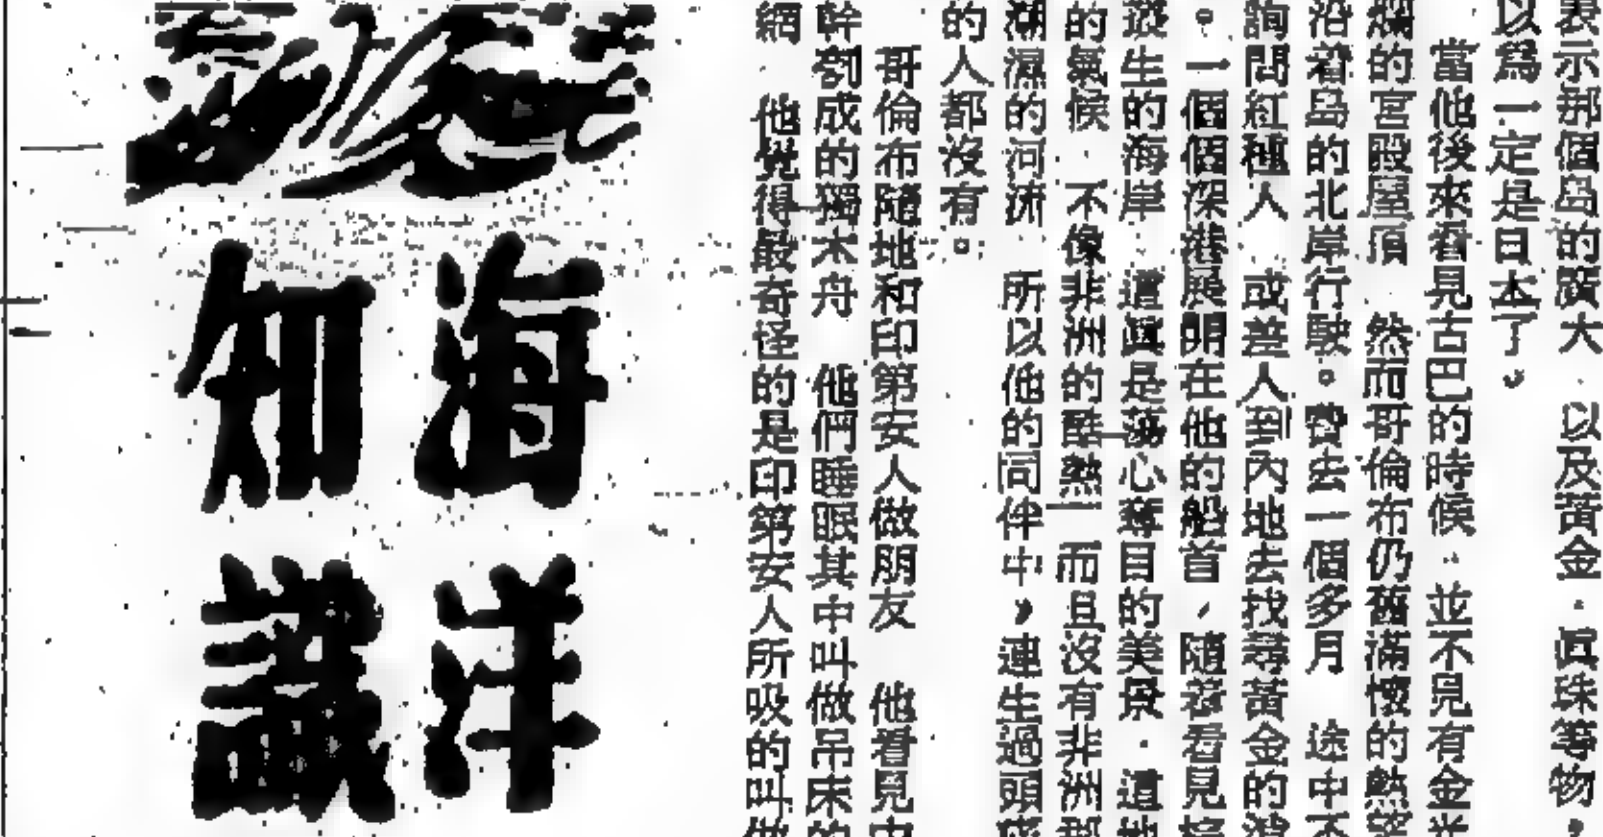 表示那個島的廣大.以及黃金.眞珠等物,
以爲一定是日本了。
當他後來看見古巴的時候..並不見有金
爛的宮殿屋頂 然而哥倫布仍舊滿懷的熱望
沿着島的北岸行駛。費去一個多月 途中不
詢問紅種人 或差人到內地去找尋黃金的
。一個個深港展明在他的船首,隨着看見
叢生的海岸 這眞是蕩心奪目的美景.這地
的氣候.不像非洲的酷熱 而且沒有非洲那
潮濕的河流 所以他的同伴中,連生過頭
的人都沒有。
哥倫布隨地和印第安人做朋友 他看見
幹刳成的獨木舟 他們睡眠其中叫做吊床的
網.他覺得最奇怪的是印第安人所吸的叫做
海洋
知識